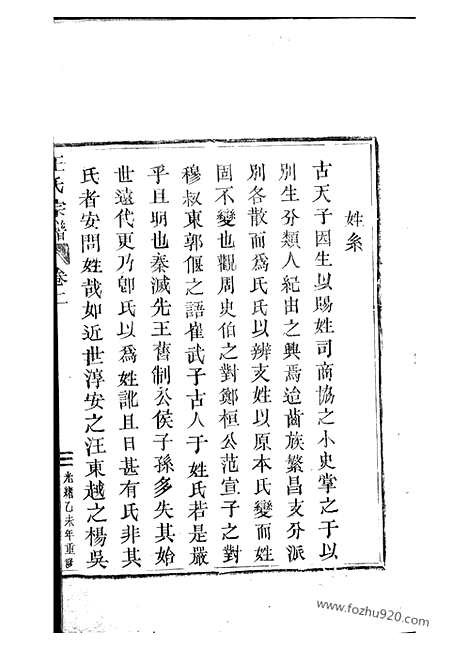 姓系
古天子因生以賜姓司商協之小史掌之于以
別生分類人紀由之興焉迨齒族繁昌支分派
別各散而爲氏氏以辨支姓以原本氏變而姓
固不變也觀周史伯之對鄭桓公范宣子之對
穆叔東郭偃之語崔武子古人于姓氏若是嚴
乎且明也秦滅先王舊制公侯子孫多失其始
世遠代更乃卽氏以爲姓訛且日甚有氏非其
氏者安問姓哉如近世淳安之汪東越之楊吳
氏宗譜 卷
光緒乙未年重修
www.fozhu920.com